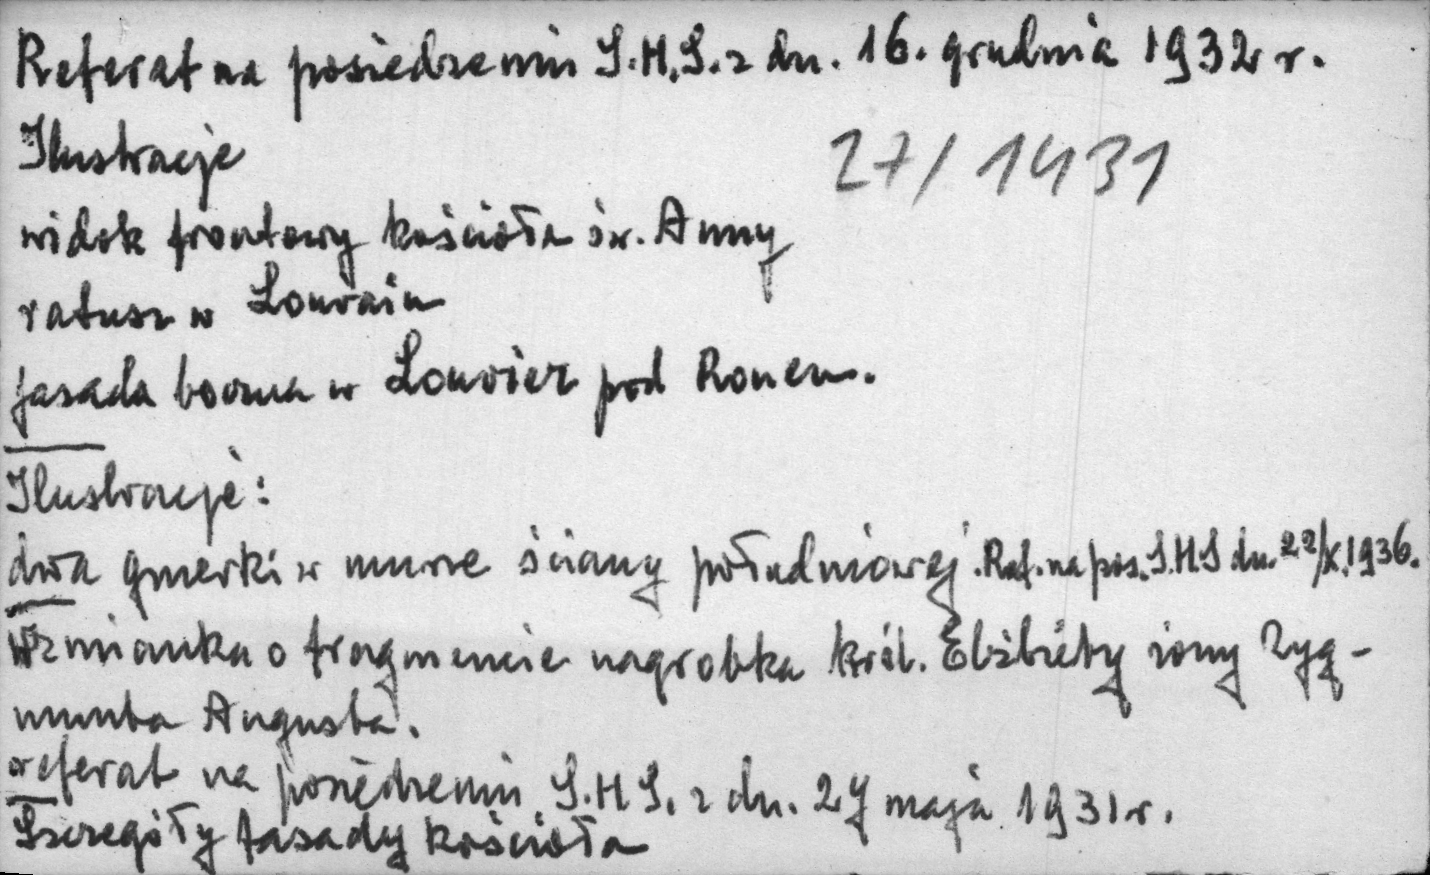 Referat na posiedzeniu S.H.S. z dn. 16. grudnia 1932 r.
Ilustracje
27/1431
widok frontowy kościoła św. Anny
ratusz w Louvain
fasada boczna w Louvier pod Rouen.
Ilustracje:
dwa gmerki w murze ściany południowej. Ref. na pos. S.H.S dn. 22/X.1936.
Wzmianka o fragmencie nagrobka król. Elżbiety żony Zyg-
munta Augusta.
referat na posiedzeniu S.H.S. z dn. 27 maja 1931 r.
Szczegóły fasady kościoła